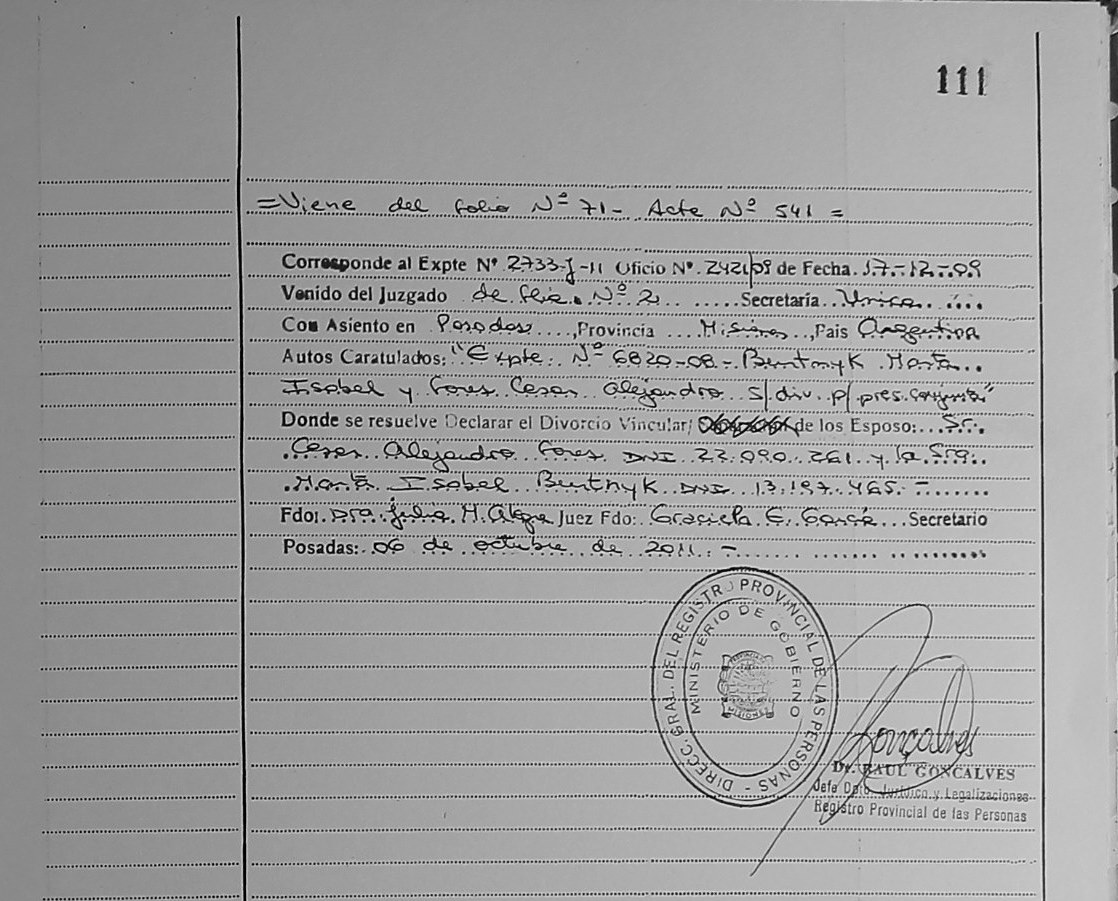 111
=Viene del folio Nº 71- Acta Nº 541 =
Corresponde al Expte Nº 2733-J-11 Oficio Nº. 2421/09 de Fecha. 17-12-09
Venido del Juzgado de Flia. Nº 2 ...... Secretaría.. Única.. ....
Con Asiento en Posadas....,Provincia ....Misiones..,Pais Argentina
Autos Caratulados: "Expte. Nº 6820-08-Bentnyk Marta..
Isabel y Fores Cesar Alejandro s/div. p/ pres. conjunta"
Donde se resuelve Declarar el Divorcio Vincular/ de los Esposo:...Sr..
.Cesar Alejandro Fores DNI 22.090.261 y la Sra..
.Marta Isabel Bentnyk DNI 13.197.465.-.......
Fdo: Dra. Julia M. Alegre Juez Fdo: Graciela E. García...Secretario
Posadas: 06 de octubre de 2011.-
DIRECC. GRAL. DEL REGISTRO PROVINCIAL DE LAS PERSONAS -
MINISTERIO DE GOBIERNO
MISIONES
Gonçalves
Dr. RAUL GONCALVES
Jefe Dpto. Jurídico y Legalizaciones
Registro Provincial de las Personas